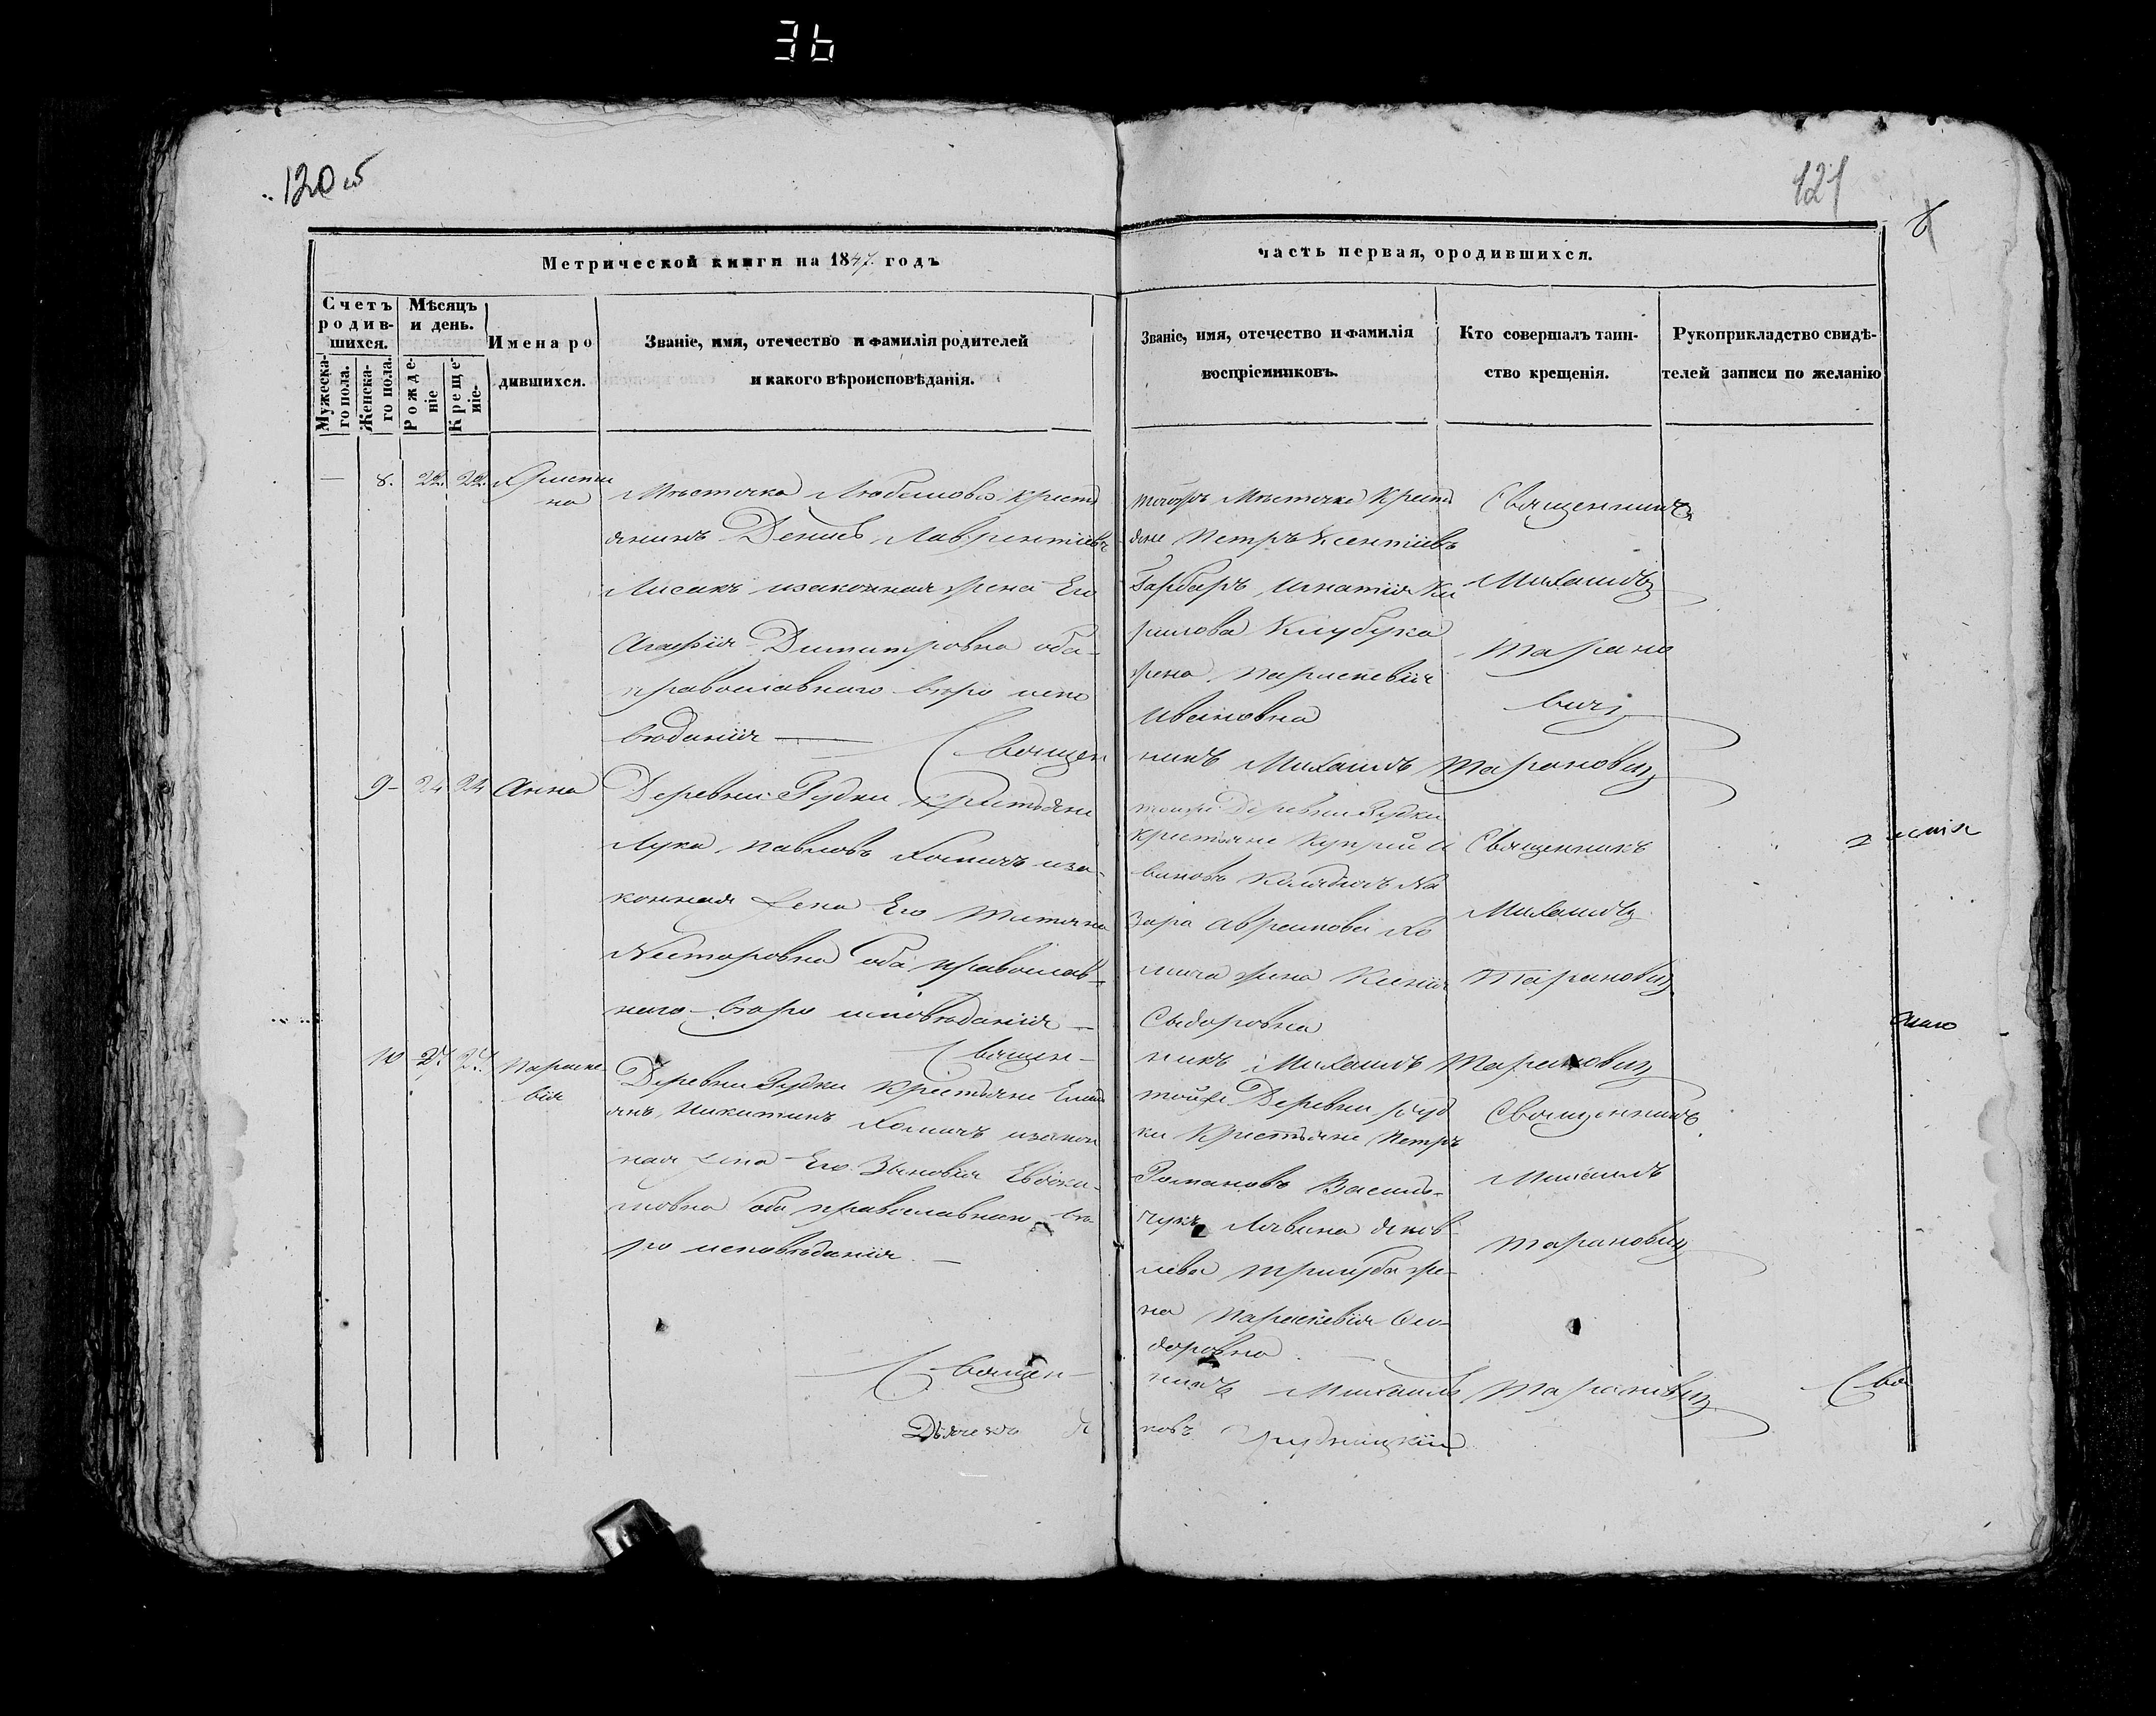 36
120 об
121
8
Метрической книги на 1847. годъ
часть первая, ородившихся.
Счетъ родив-шихся.
Мѣсяцъ и день.
Мужеска-го пола.
Женска-го пола.
Рожде-ніе
Креще-ніе.
Имена ро
дившихся.
Званіе, имя, отечество и фамилія родителей
и какого вѣроисповѣданія.
Званіе, имя, отечество и фамилія
воспріемниковъ.
Кто совершалъ таин-
ство крещенія.
Рукоприкладство свидѣ-
телей записи по желанію
— 8. 22. 22. Христи
на
Мѣстечка Любешова крестя
янинъ Денисъ Лаврентіевъ
Лисакъ изаконная жена Его
Агафія Димитровна оба
православнаго вѣро испо
вѣданія —
тогожъ Мѣстечка Крестя
яне Петръ Ксентіевъ
Гарбаръ, Игнатія Ки
рилова Клубука
жена Параскевія
Ивановна
Священникъ
Михаилъ
Тарано
вичъ
Священ
никъ Михаилъ Тарановичъ
9 24 24 Анна
Деревни Рудки крестьяне
Лука Павловъ Хомичъ иза
конная жена Его Татіяна
Несторовна оба православ-
наго вѣро исповѣданія —
тойже Деревни Рудки
крестьяне Куприй
вановъ На
зара Аврамова Хо
мича жена Ксенія
Сыдоровна
Священникъ
Михаилъ
Тарановичъ
Священ-
никъ Михаилъ Тарановичъ
10 27. 27. Параске
вія
Деревни Рудки крестьяне Емил
янъ Никитинъ Хомичъ изакон
ная жена Его Зѣновія Евдоки-
мовна оба православнаго вѣ
ро исповѣданія —
тойже Деревни Руд
ки Крестьяне Петръ
Романовъ Василь-
чукъ Лавина Яков
лева жe-
на Параскевія Сы-
доровна
Священникъ
Михаилъ
Тарановичъ
Священ-
никъ Михаилъ Тарановичъ
Дьячекъ Я
ковъ
Свя